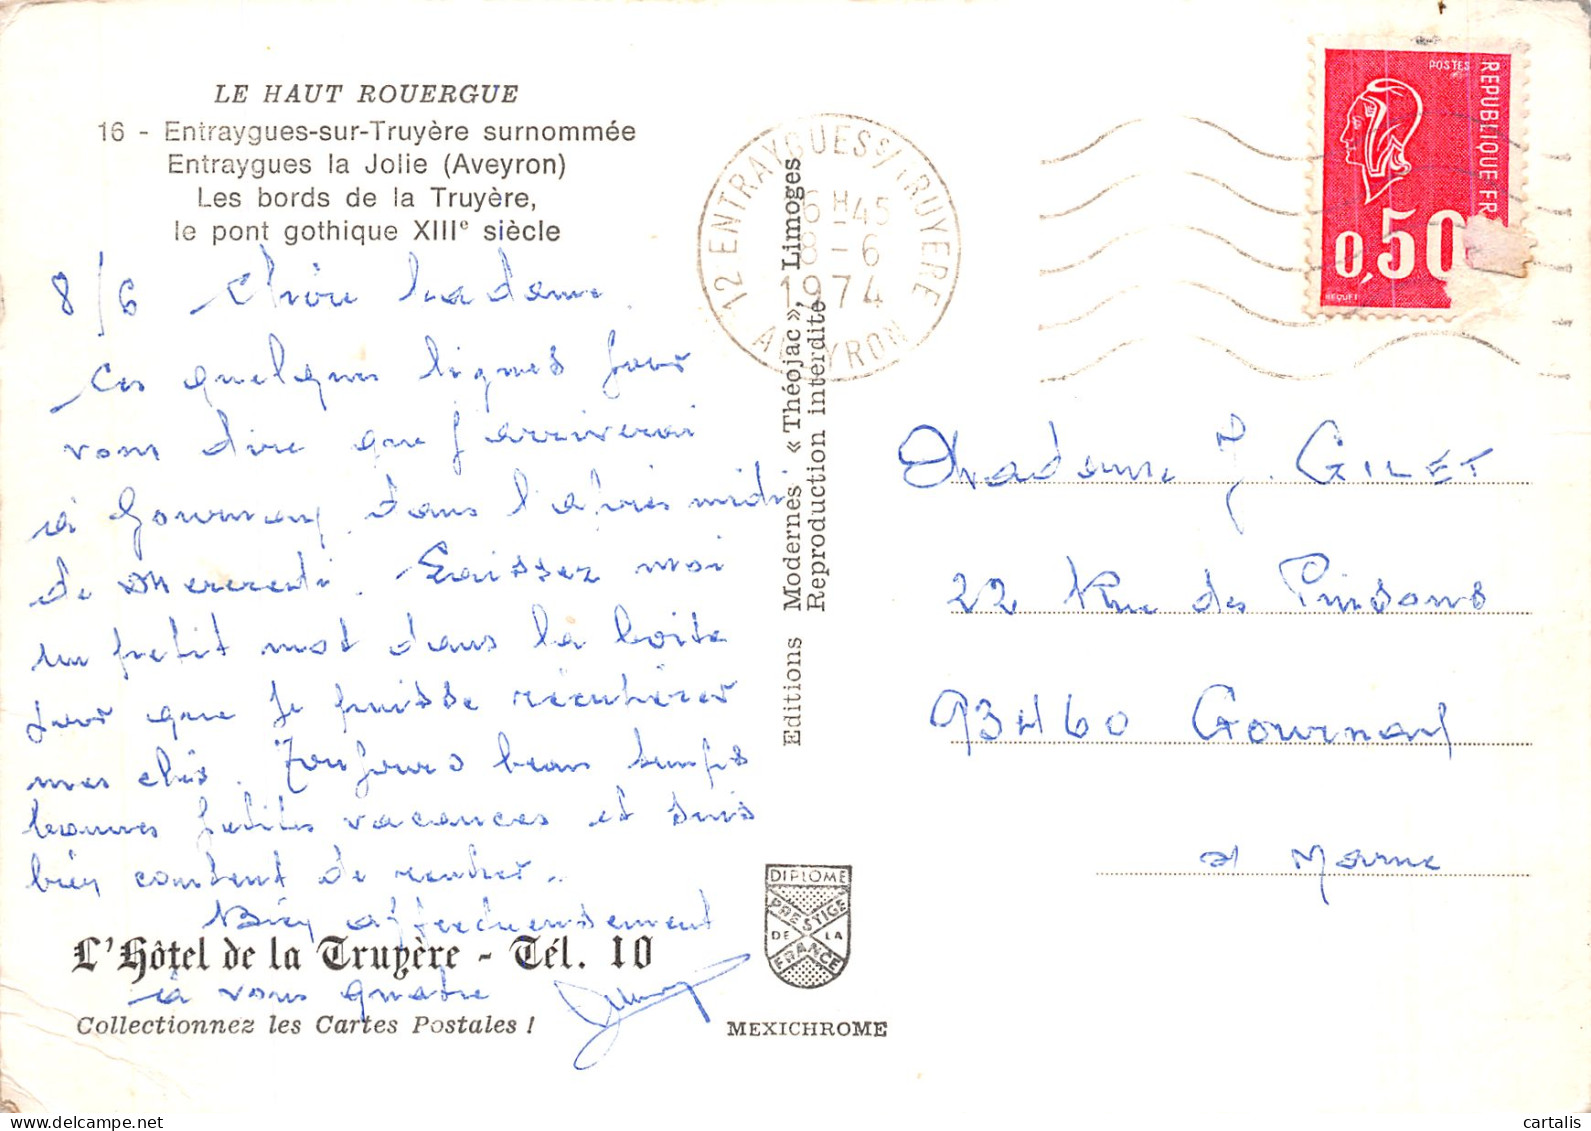 LE HAUT ROUERGUE
16 - Entraygues-sur-Truyère surnommée
Entraygues la Jolie (Aveyron)
Les bords de la Truyère,
le pont gothique XIIIe siècle
8/6 Chère Madame
Ces quelques lignes pour
vous dire que j'arriverai
à Gournay dans l'après midi
de Mercredi. Laissez moi
un petit mot dans la boite
pour que je puisse récupérer
mes clés. Toujours beau temps
bonnes petites vacances et suis
bien content de rentrer..
Bien affectueusement
L'Hôtel de la Truyère - Tél. 10
à vous quatre
Collectionnez les Cartes Postales !
Editions Modernes « Théojac », Limoges
Reproduction interdite
DIPLOME
PRESTIGE
DE LA
FRANCE
MEXICHROME
12 ENTRAYGUES S/TRUYERE
6H45
8-6
1974
AVEYRON
POSTES
REPUBLIQUE FR
0,50
BEQUET
Madame J. GILET
22 Rue des Pinsons
93460 Gournay
s/ Marne
cartalis